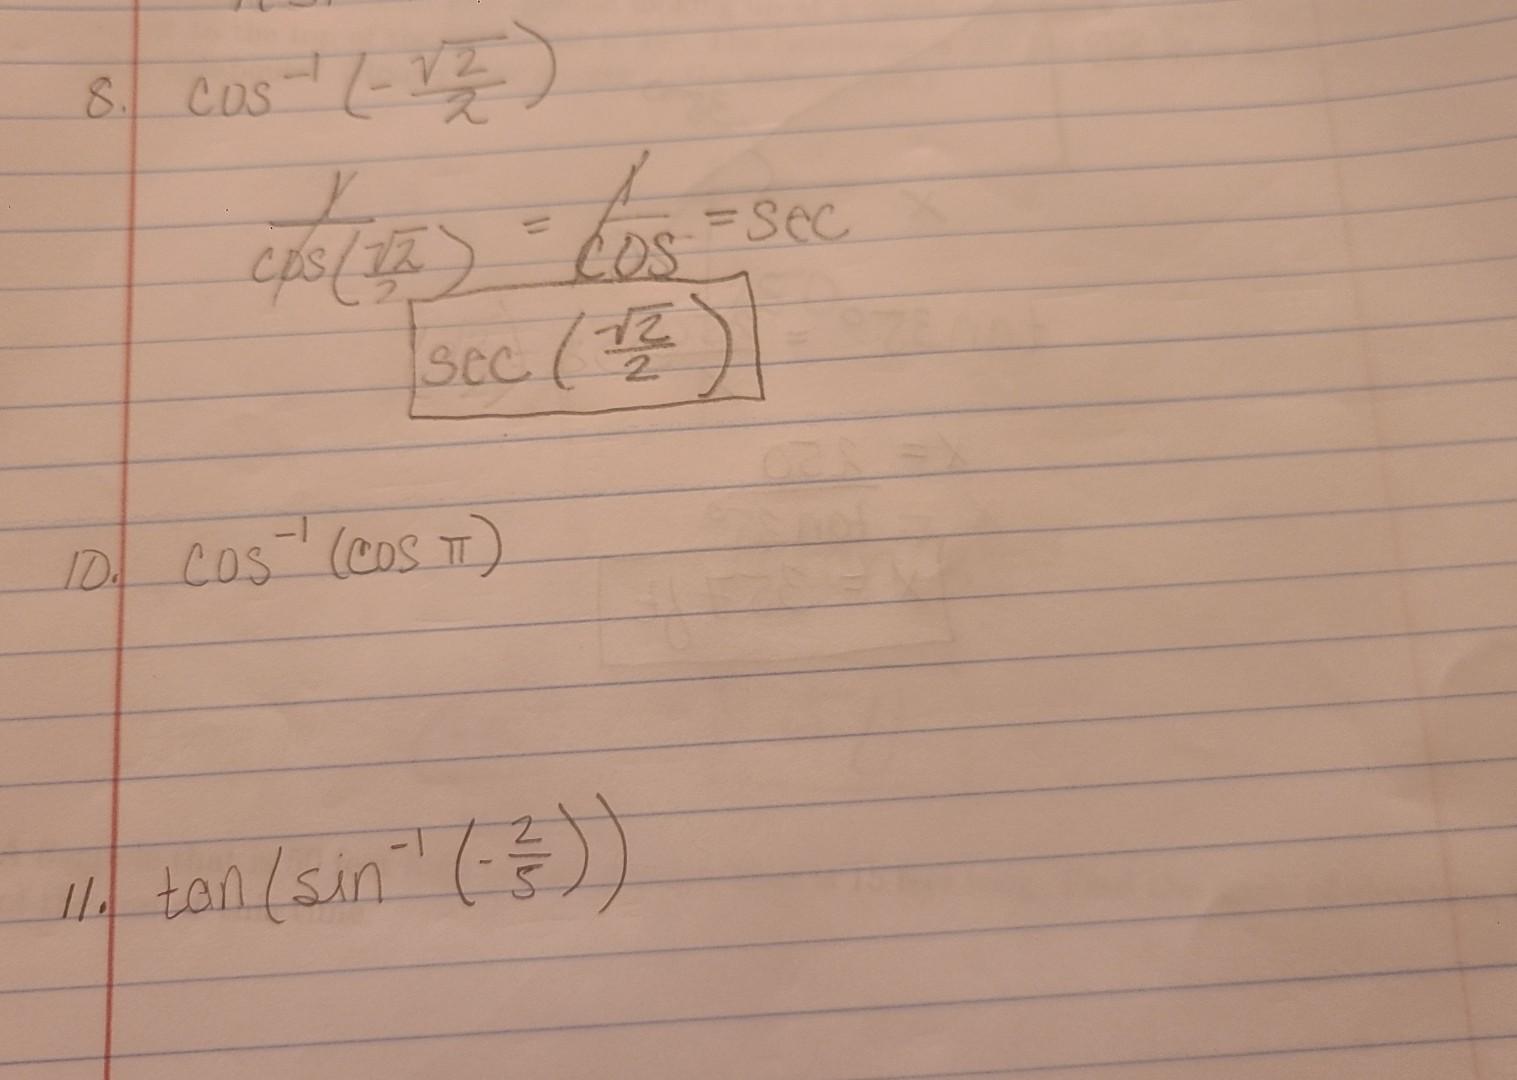 8. cos⁻¹(-√2/2)
1/cos(√2/2) = 1/cos = sec
sec(√2/2)
10. cos⁻¹(cos π)
11. tan(sin⁻¹(-2/5))